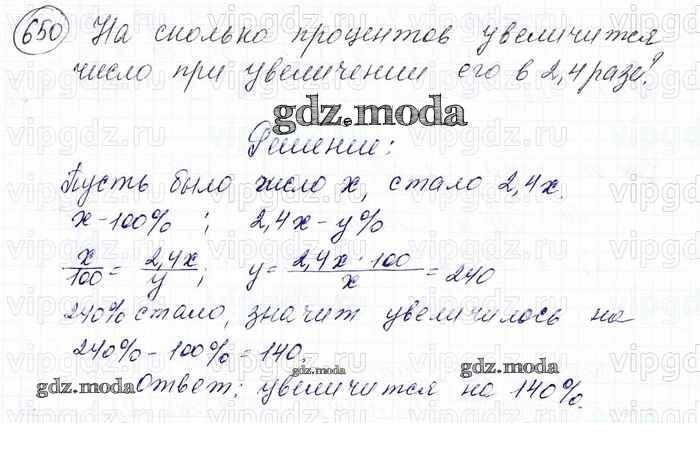 650 На сколько процентов увеличится
число при увеличении его в 2,4 раза?
gdz.moda
Решение:
Пусть было число x, стало 2,4x.
x - 100% ; 2,4x - y%
x/100 = 2,4x/y ; y = 2,4x · 100/x = 240
240% стало, значит увеличилось на
240% - 100% = 140.
gdz.moda Ответ: увеличится на 140%.
gdz.moda
gdz.moda